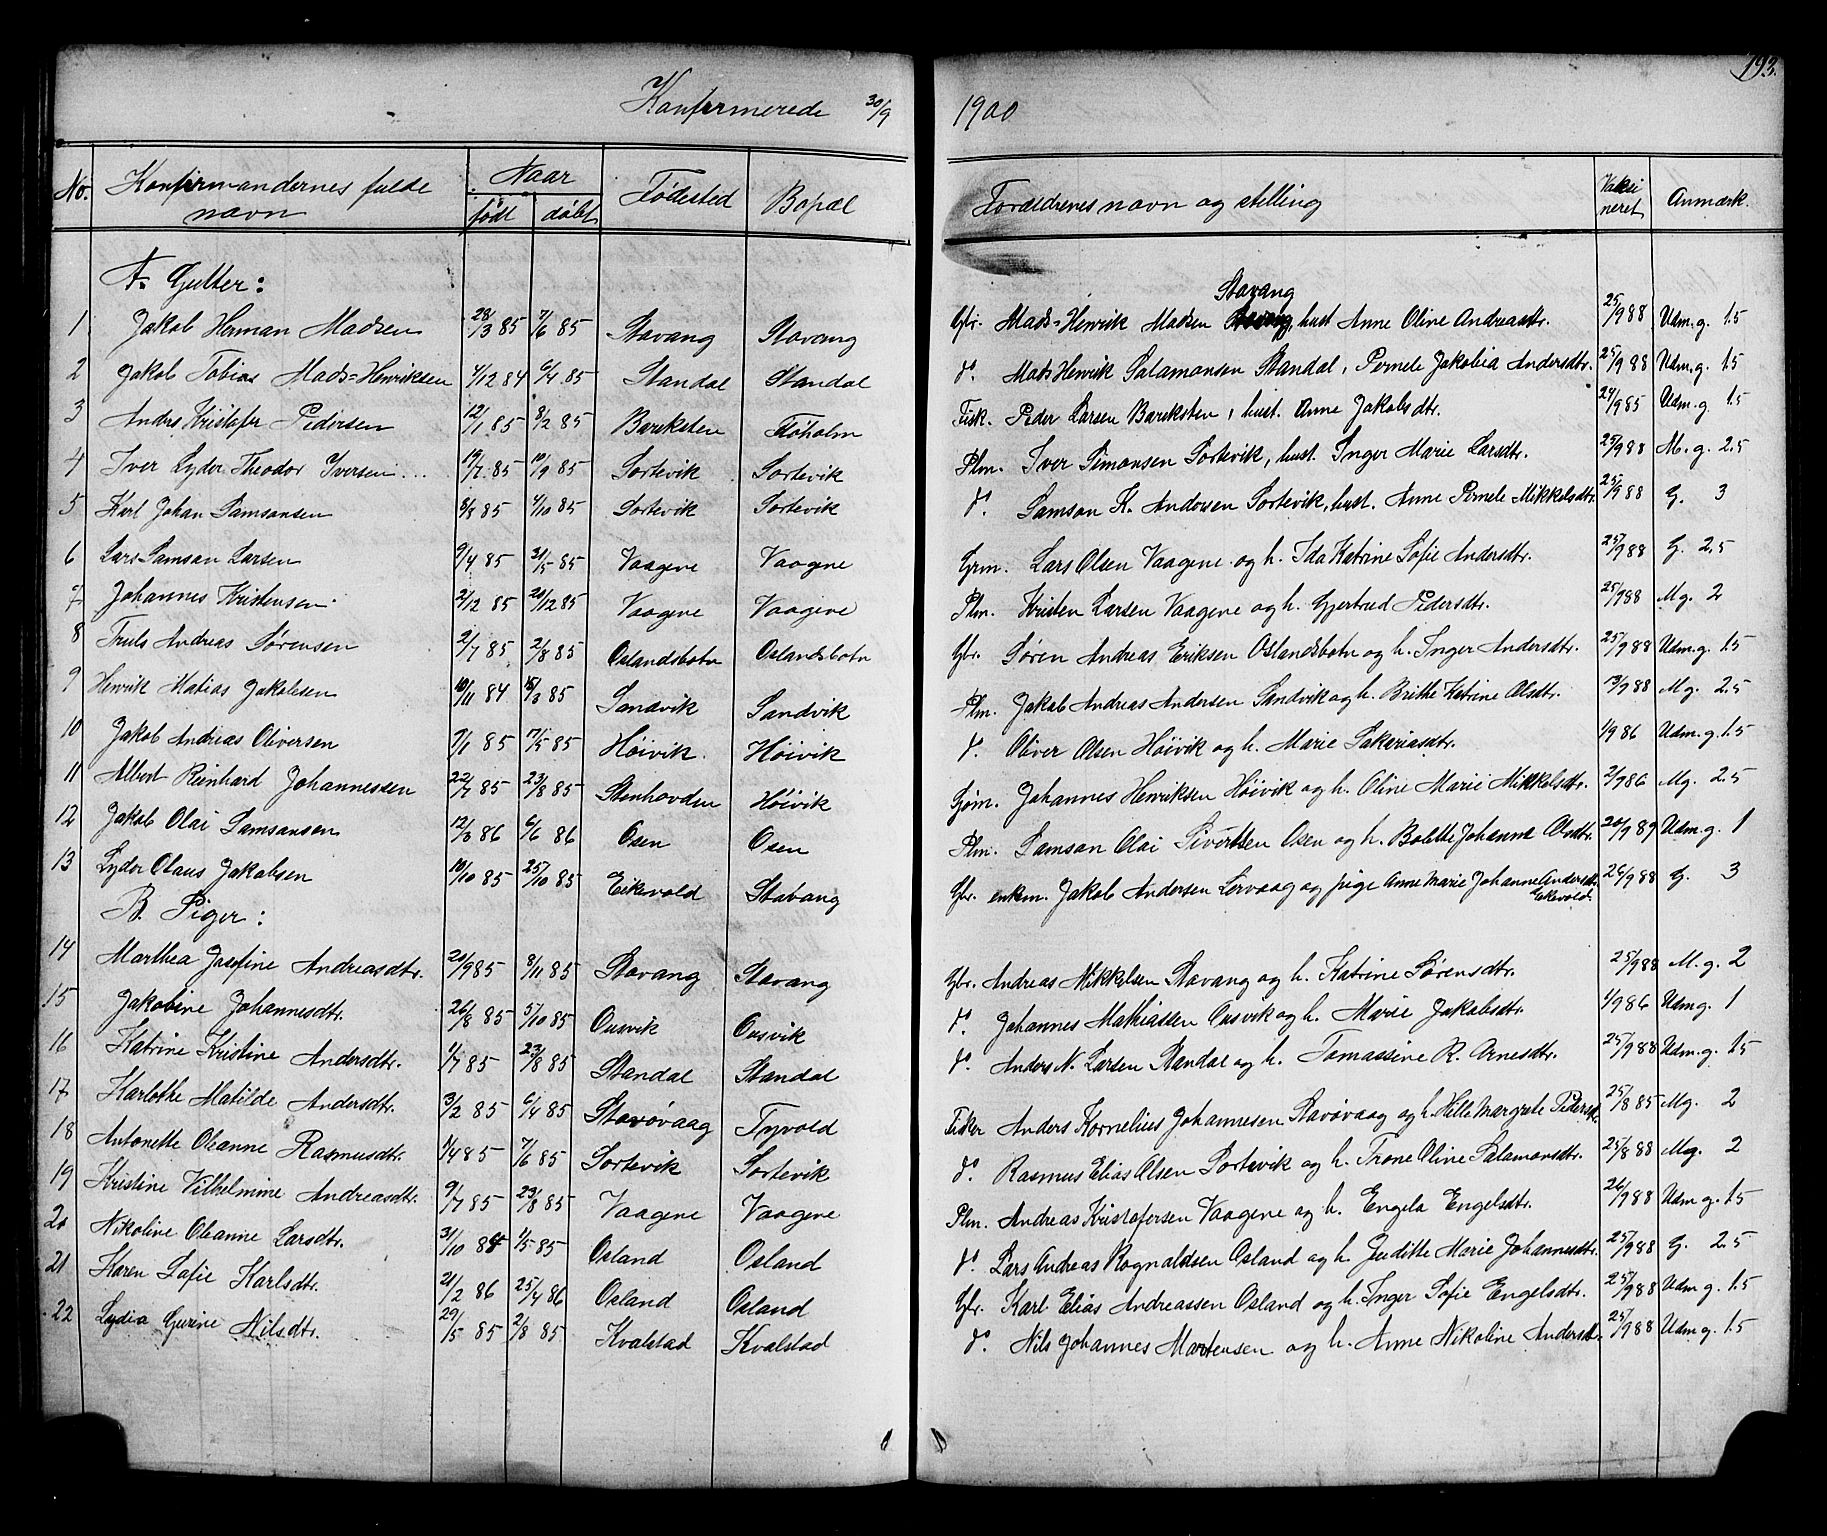 193.
Konfirmerede 30/9 1900
No. Konfirmandernes fulde navn Naar født døbt Fødested Bopæl Forældrenes navn og stilling Vaksineret Anmærk.
A. Gutter:
1 Jakob Herman Madsen 28/3 85 7/6 85 Stavang Stavang Gbr. Mads-Henrik Madsen Stavang, hust Anne Oline Andreasdtr. 25/9 88 Udm. g. 1.5
2 Jakob Tobias Mads-Henriksen 4/12 84 6/4 85 Standal Standal do. Mads Henrik Salamonsen Standal, Pernele Jakobia Andersdtr. 25/9 88 Udm. g. 1.5
3 Anders Kristofer Pedersen 12/1 85 8/2 85 Bareksten Fisk. Peder Larsen Bareksten, hust. Anne Jakobsdtr. 24/9 85 Udm. g. 1.5
4 Iver Lyder Theodor Iversen ... 19/7 85 10/9 85 Sortevik Sortevik Plm. Iver Simonsen Sortevik, hust. Inger Marie Larsdtr. 25/9 88 M. g. 2.5
5 Karl Johan Samsonsen 8/8 85 4/10 85 Sortevik Sortevik do. Samson K. Andersen Sortevik, hust. Anne Pernele Mikkelsdtr. 25/9 88 G. 3
6 Lars Samson Larsen 9/4 85 31/5 85 Vaagene Vaagene Grm. Lars Olsen Vaagene og h. Ida Katrine Sofie Andersdtr. 25/9 88 G. 2.5
7 Johannes Kristensen 2/12 85 20/12 85 Vaagene Vaagene Plm. Kristen Larsen Vaagene og h. Gjertrud Pedersdtr. 25/9 88 Mg. 2
8 Truls Andreas Sørensen 2/7 85 2/8 85 Oslandsbotn Oslandsbotn Gbr. Søren Andreas Eriksen Oslandsbotn og h. Inger Andersdtr. 25/9 88 Udm. g. 1.5
9 Henrik Matias Jakobsen 10/11 84 15/3 85 Sandvik Sandvik Plm. Jakob Andreas Andersen Sandvik og h. Brithe Katrine Olsdtr. 13/9 88 Mg. 2.5
10 Jakob Andreas Oliversen 7/1 85 7/5 85 Høivik. Høivik do. Oliver Olsen Høivik og h. Marie Sakariasdtr. 1/9 86 Udm. g. 1.5
11 Albert Reinhard Johannessen 22/7 85 23/8 85 Stenhovden Høivik Sjøm. Johannes Henriksen Høivik og h. Oline Marie Mikkelsdtr. 2/9 86 Mg. 2.5
12 Jakob Olai Samsonsen 12/3 86 6/6 86 Osen Osen Plm. Samson Olai Sivertsen Osen og h. Bolette Johanna Olsdtr. 20/9 89 Udm. g. 1
13 Lyder Olaus Jakobsen 10/10 85 25/10 85 Eikevold Stavang Gbr. enkem. Jakob Andersen Lervaag og pige Anne Marie Johanne Andersdtr. Eikevold. 26/9 88 G. 3
B. Piger:
14 Marthea Josefine Andreasdtr. 20/9 85 8/11 85 Stavang Stavang Gbr. Andreas Mikkelsen Stavang og h. Katrine Sørensdtr. 25/9 88 M. g. 2
15 Jakobine Johannesdtr. 26/8 85 5/10 85 Ousvik Ousvik do. Johannes Mathiassen Ousvik og h. Marie Jakobsdtr. 1/9 86 Udm g. 1
16 Katrine Kristine Andersdtr. 1/7 85 23/8 85 Standal Standal do. Anders N. Larsen Standal og h. Tomassine R. Arnesdtr. 25/9 88 Udm. g. 1.5
17 Karlothe Matilde Andersdtr. 3/2 85 6/4 85 Stavøvaag Tyvold Fisker Anders Kornelius Johannesen Stavøvaag og h. Hille Margrete Pedersdtr. 25/8 85 Mg. 2
18 Antonette Oleanne Rasmusdtr. 1/4 85 7/6 85 Sortevik Sortevik do. Rasmus Elias Olsen Sortevik og h. Trone Oline Salamonsdtr. 25/8 88 Mg. 2
19 Kristine Vilhelmine Andreasdtr. 9/7 85 23/8 85 Vaagene Vaagene Plm. Andreas Kristofersen Vaagene og h. Engela Engelsdtr. 26/9 88 Udm g. 1.5
20 Nikoline Oleanne Larsdtr. 31/10 84 1/5 85 Osland Osland do. Lars Andreas Rognaldsen Osland og h. Juditte Marie Johannesdtr. 25/9 88 G. 2.5
21 Karen Sofie Karlsdtr. 21/2 86 25/4 86 Osland Osland Gbr. Karl Elias Andreassen Osland og h. Inger Sofie Engelsdtr. 25/9 88 Udm g. 1.5
22 Lydia Gurine Nilsdtr. 29/5 85 2/8 85 Kvalstad Kvalstad do. Nils Johannes Martensen og h. Anne Nikoline Andersdtr. 25/9 88 Udm g. 1.5